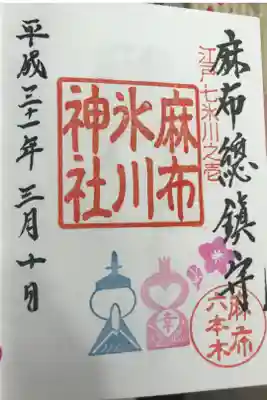 麻布總鎮守
江戸七氷川之壱
麻布
氷川
神社
平成三十一年三月十日
幸
麻布
六本木